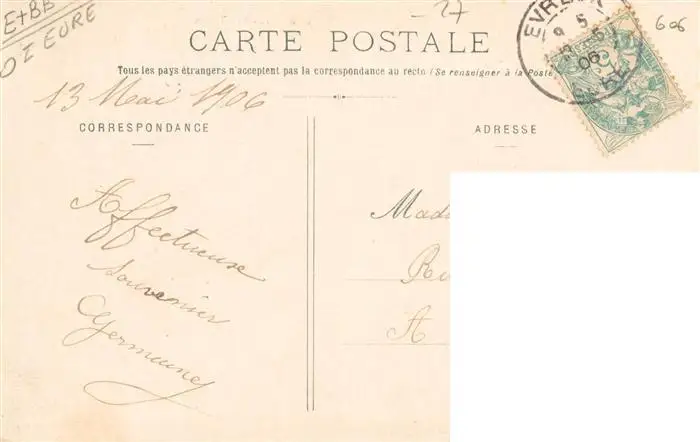 E+BB
01 EURE
27
606
CARTE POSTALE
Tous les pays étrangers n'acceptent pas la correspondance au recto (Se renseigner à la Poste
13 Mai 1906
CORRESPONDANCE
ADRESSE
EVREUX
9 5
06
EURE
Affectueux
souvenir
Germaine
Mad
Ru
A